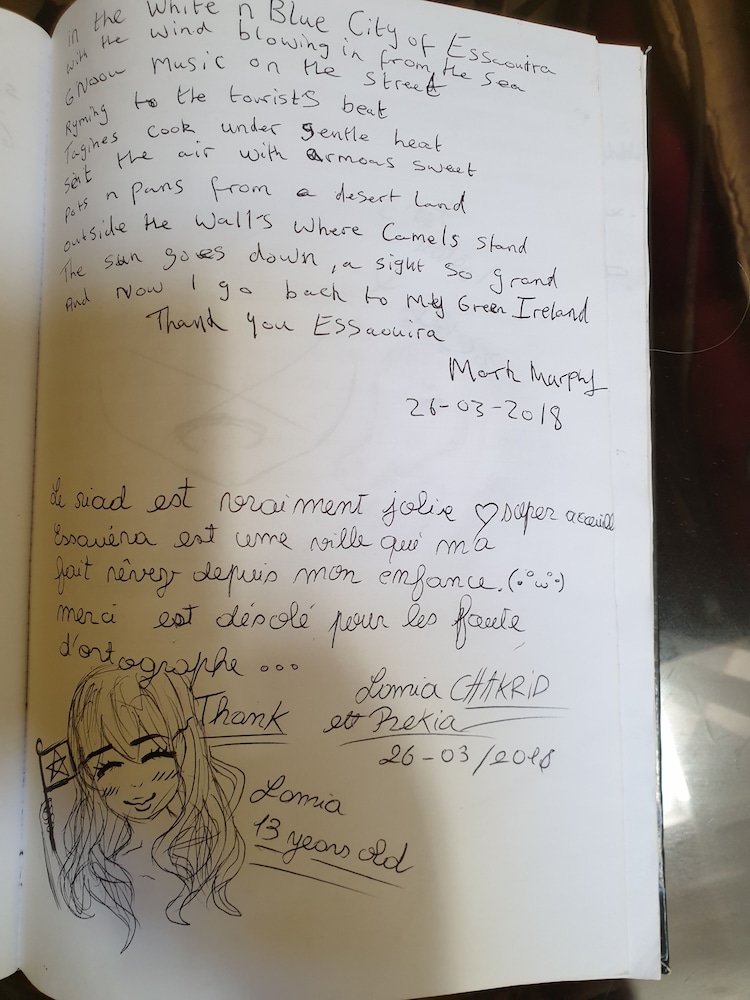 in the White n Blue City of Essaouira
with the wind blowing in from the sea
GNaou Music on the street
Ryming to the tourists beat
Tagines cook under gentle heat
sent the air with armoas sweet
Pots n pans from a desert Land
outside the Wall's Where Camels stand
The sun goes down, a sight so grand
And Now I go back to my Green Ireland
Thank you Essaouira
Mark Murphy
26-03-2018
Le riad est vraiment jolie ♡ super accueille
Essauéra est une ville qui m'a
fait rêver depuis mon enfance. (·°ω°·)
merci est désolé pour les faute
d'ortographe ...
Lamia CHAKRID
Thank et Rekia
26-03/2018
Lamia
13 years old